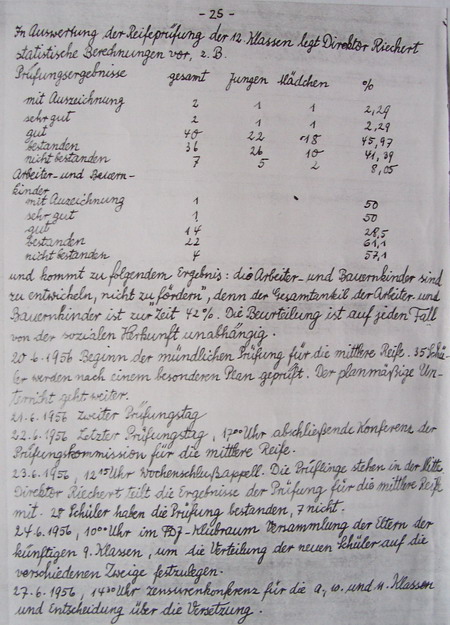 - 25 -
In Auswertung der Reifeprüfung der 12. Klassen legt Direktor Riechert
statistische Berechnungen vor, z. B.
Prüfungsergebnisse gesamt Jungen Mädchen %
mit Auszeichnung 2 1 1 2,29
sehr gut 2 1 1 2,29
gut 40 22 18 45,97
bestanden 36 26 10 41,39
nicht bestanden 7 5 2 8,05
Arbeiter- und Bauern-
kinder
mit Auzeichnung 1 50
sehr gut 1 50
gut 14 28,5
bestanden 22 61,1
nicht bestanden 4 57,1
und kommt zu folgendem Ergebnis: die Arbeiter- und Bauernkinder sind
zu entwickeln, nicht zu fördern", denn der Gesamtanteil der Arbeiter- und
Bauernkinder ist zur Zeit 42%. Die Beurteilung ist auf jeden Fall
von der sozialen Herkunft unabhängig.
20.6.1956 Beginn der mündlichen Prüfung für die mittlere Reife. 35 Schü-
ler werden nach einem besonderen Plan geprüft. Der planmäßige Un-
terricht geht weiter.
21.6.1956 Zweiter Prüfungstag
22.6.1956 Letzter Prüfungstag, 17⁰⁰ Uhr abschließende Konferenz der
Prüfungskommission für die mittlere Reife.
23.6.1956, 12¹⁵ Uhr Wochenschlußappell. Die Prüflinge stehen in der Mitte
Direktor Riechert teilt die Ergebnisse der Prüfung für die mittlere Reife
mit. 28 Schüler haben die Prüfung bestanden, 7 nicht.
24.6.1956, 10⁰⁰ Uhr im FDJ-Klubraum Versammlung der Eltern der
künftigen 9. Klassen, um die Verteilung der neuen Schüler auf die
verschiedenen Zweige festzulegen.
27.6.1956, 14³⁰ Uhr Zensurenkonferenz für die 9., 10. und 11. Klassen
und Entscheidung über die Versetzung.